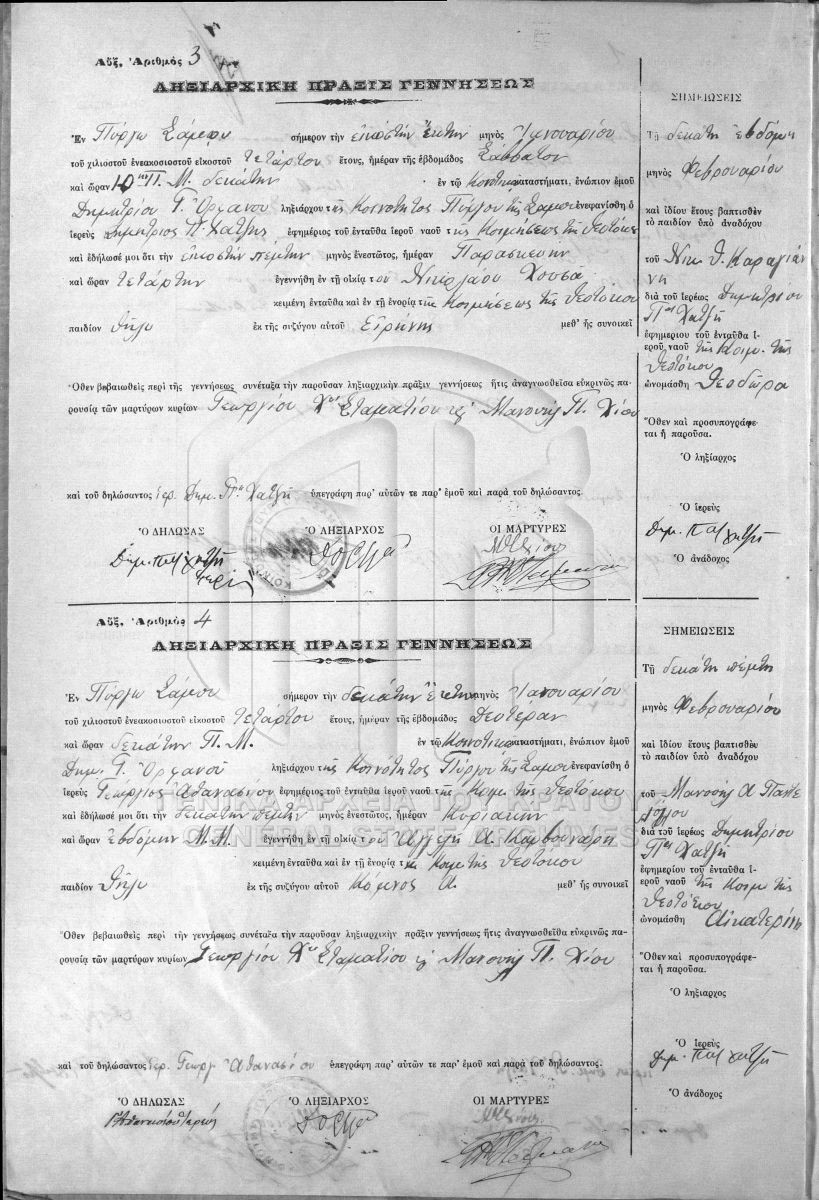 Αὔξ. Ἀριθμὸς 3
ΛΗΞΙΑΡΧΙΚΗ ΠΡΑΞΙΣ ΓΕΝΝΗΣΕΩΣ
Ἐν Πύργῳ Σάμου σήμερον τὴν εἰκοστὴν ἕκτην μηνὸς Ἰανουαρίου
τοῦ χιλιοστοῦ ἐνεακοσιοστοῦ εἰκοστοῦ τετάρτου ἔτους, ἡμέραν τῆς ἑβδομάδος Σάββατον
καὶ ὥραν 10ην Π. Μ. δεκάτην ἐν τῷ Κοινοτικῷ καταστήματι, ἐνώπιον ἐμοῦ
Δημητρίου Γ. Ὀρφανοῦ ληξιάρχου τῆς Κοινότητος Πύργου τῆς Σάμου ἐνεφανίσθη ὁ
ἱερεὺς Δημήτριος Π. Χατζῆς ἐφημέριος τοῦ ἐνταῦθα ἱεροῦ ναοῦ τῆς Κοιμήσεως τῆς Θεοτόκου
καὶ ἐδήλωσέ μοι ὅτι τὴν εἰκοστὴν πέμπτην μηνὸς ἐνεστῶτος, ἡμέραν Παρασκευὴν
καὶ ὥραν τετάρτην ἐγεννήθη ἐν τῇ οἰκίᾳ του Νικολάου
κειμένῃ ἐνταῦθα καὶ ἐν τῇ ἐνορίᾳ τῆς Κοιμήσεως τῆς Θεοτόκου
παιδίον θῆλυ ἐκ τῆς συζύγου αὐτοῦ Εἰρήνης μεθ᾽ ἧς συνοικεῖ
Ὅθεν βεβαιωθεὶς περὶ τῆς γεννήσεως συνέταξα τὴν παροῦσαν ληξιαρχικὴν πρᾶξιν γεννήσεως ἥτις ἀναγνωσθεῖσα εὐκρινῶς πα-
ρουσίᾳ τῶν μαρτύρων κυρίων Γεωργίου Χ" Σταματίου καὶ Μανουὴλ Π. Χίου
καὶ τοῦ δηλώσαντος ἱερ. Δημ. Π. Χατζῆ ὑπεγράφη παρ᾽ αὐτῶν τε παρ᾽ ἐμοῦ καὶ παρὰ τοῦ δηλώσαντος.
Ὁ ΔΗΛΩΣΑΣ Ὁ ΛΗΞΙΑΡΧΟΣ ΟΙ ΜΑΡΤΥΡΕΣ
Δημ. Παπ χατζῆ
ΣΗΜΕΙΩΣΕΙΣ
Τῇ δεκάτῃ ἑβδόμῃ
μηνὸς Φεβρουαρίου
καὶ ἰδίου ἔτους βαπτισθὲν
τὸ παιδίον ὑπὸ ἀναδόχου
τοῦ Νικ. Θ. Καραγιάν
νη
διὰ τοῦ ἱερέως Δημητρίου
Π. Χατζῆ
ἐφημερίου τοῦ ἐνταῦθα ἱ-
εροῦ ναοῦ τῆς Κοιμ. τῆς
Θεοτόκου
ὠνομάσθη Θεοδώρα
Ὅθεν καὶ προσυπογράφε-
ται ἡ παροῦσα.
Ὁ ληξίαρχος
Ὁ ἱερεὺς
Δημ. Παπ χατζῆ
Ὁ ἀνάδοχος
Αὔξ. Ἀριθμὸς 4
ΛΗΞΙΑΡΧΙΚΗ ΠΡΑΞΙΣ ΓΕΝΝΗΣΕΩΣ
Ἐν Πύργῳ Σάμου σήμερον τὴν δεκάτην ἕκτην μηνὸς Ἰανουαρίου
τοῦ χιλιοστοῦ ἐνεακοσιοστοῦ εἰκοστοῦ τετάρτου ἔτους, ἡμέραν τῆς ἑβδομάδος Δευτέραν
καὶ ὥραν δεκάτην Π. Μ. ἐν τῷ Κοινοτικῷ καταστήματι, ἐνώπιον ἐμοῦ
Δημ. Γ. Ὀρφανοῦ ληξιάρχου τῆς Κοινότητος Πύργου τῆς Σάμου ἐνεφανίσθη ὁ
ἱερεὺς Γεώργιος Ἀθανασίου ἐφημέριος τοῦ ἐνταῦθα ἱεροῦ ναοῦ τῆς Κοιμ. τῆς Θεοτόκου
καὶ ἐδήλωσέ μοι ὅτι τὴν δεκάτην πέμπτην μηνὸς ἐνεστῶτος, ἡμέραν Κυριακὴν
καὶ ὥραν ἑβδόμην Μ. Μ. ἐγεννήθη ἐν τῇ οἰκίᾳ του Ἀγγελῆ Α. Καρβουνάρη
κειμένῃ ἐνταῦθα καὶ ἐν τῇ ἐνορίᾳ τῆς Κοιμ. τῆς Θεοτόκου
παιδίον θῆλυ ἐκ τῆς συζύγου αὐτοῦ Α. μεθ᾽ ἧς συνοικεῖ
Ὅθεν βεβαιωθεὶς περὶ τὴν γεννήσεως συνέταξα τὴν παροῦσαν ληξιαρχικὴν πρᾶξιν γεννήσεως ἥτις ἀναγνωσθεῖσα εὐκρινῶς πα-
ρουσίᾳ τῶν μαρτύρων κυρίων Γεωργίου Χ" Σταματίου καὶ Μανουὴλ Π. Χίου
καὶ τοῦ δηλώσαντος ἱερ. Γεωργ. Ἀθανασίου ὑπεγράφη παρ᾽ αὐτῶν τε παρ᾽ ἐμοῦ καὶ παρὰ τοῦ δηλώσαντος.
Ὁ ΔΗΛΩΣΑΣ Ὁ ΛΗΞΙΑΡΧΟΣ ΟΙ ΜΑΡΤΥΡΕΣ
ΣΗΜΕΙΩΣΕΙΣ
Τῇ δεκάτῃ πέμπτῃ
μηνὸς Φεβρουαρίου
καὶ ἰδίου ἔτους βαπτισθὲν
τὸ παιδίον ὑπὸ ἀναδόχου
τοῦ Μανουὴλ Α
διὰ τοῦ ἱερέως Δημητρίου
Π. Χατζῆ
ἐφημερίου τοῦ ἐνταῦθα ἱ-
εροῦ ναοῦ τῆς Κοιμ. τῆς
Θεοτόκου
ὠνομάσθη Αἰκατερίνη
Ὅθεν καὶ προσυπογράφε-
ται ἡ παροῦσα.
Ὁ ληξιαρχος
Ὁ ἱερεὺς
Δημ. Παπ χατζῆ
Ὁ ἀνάδοχος
ΓΕΝΙΚΑ ΑΡΧΕΙΑ ΤΟΥ ΚΡΑΤΟΥΣ
GENERAL STATE ARCHIVES